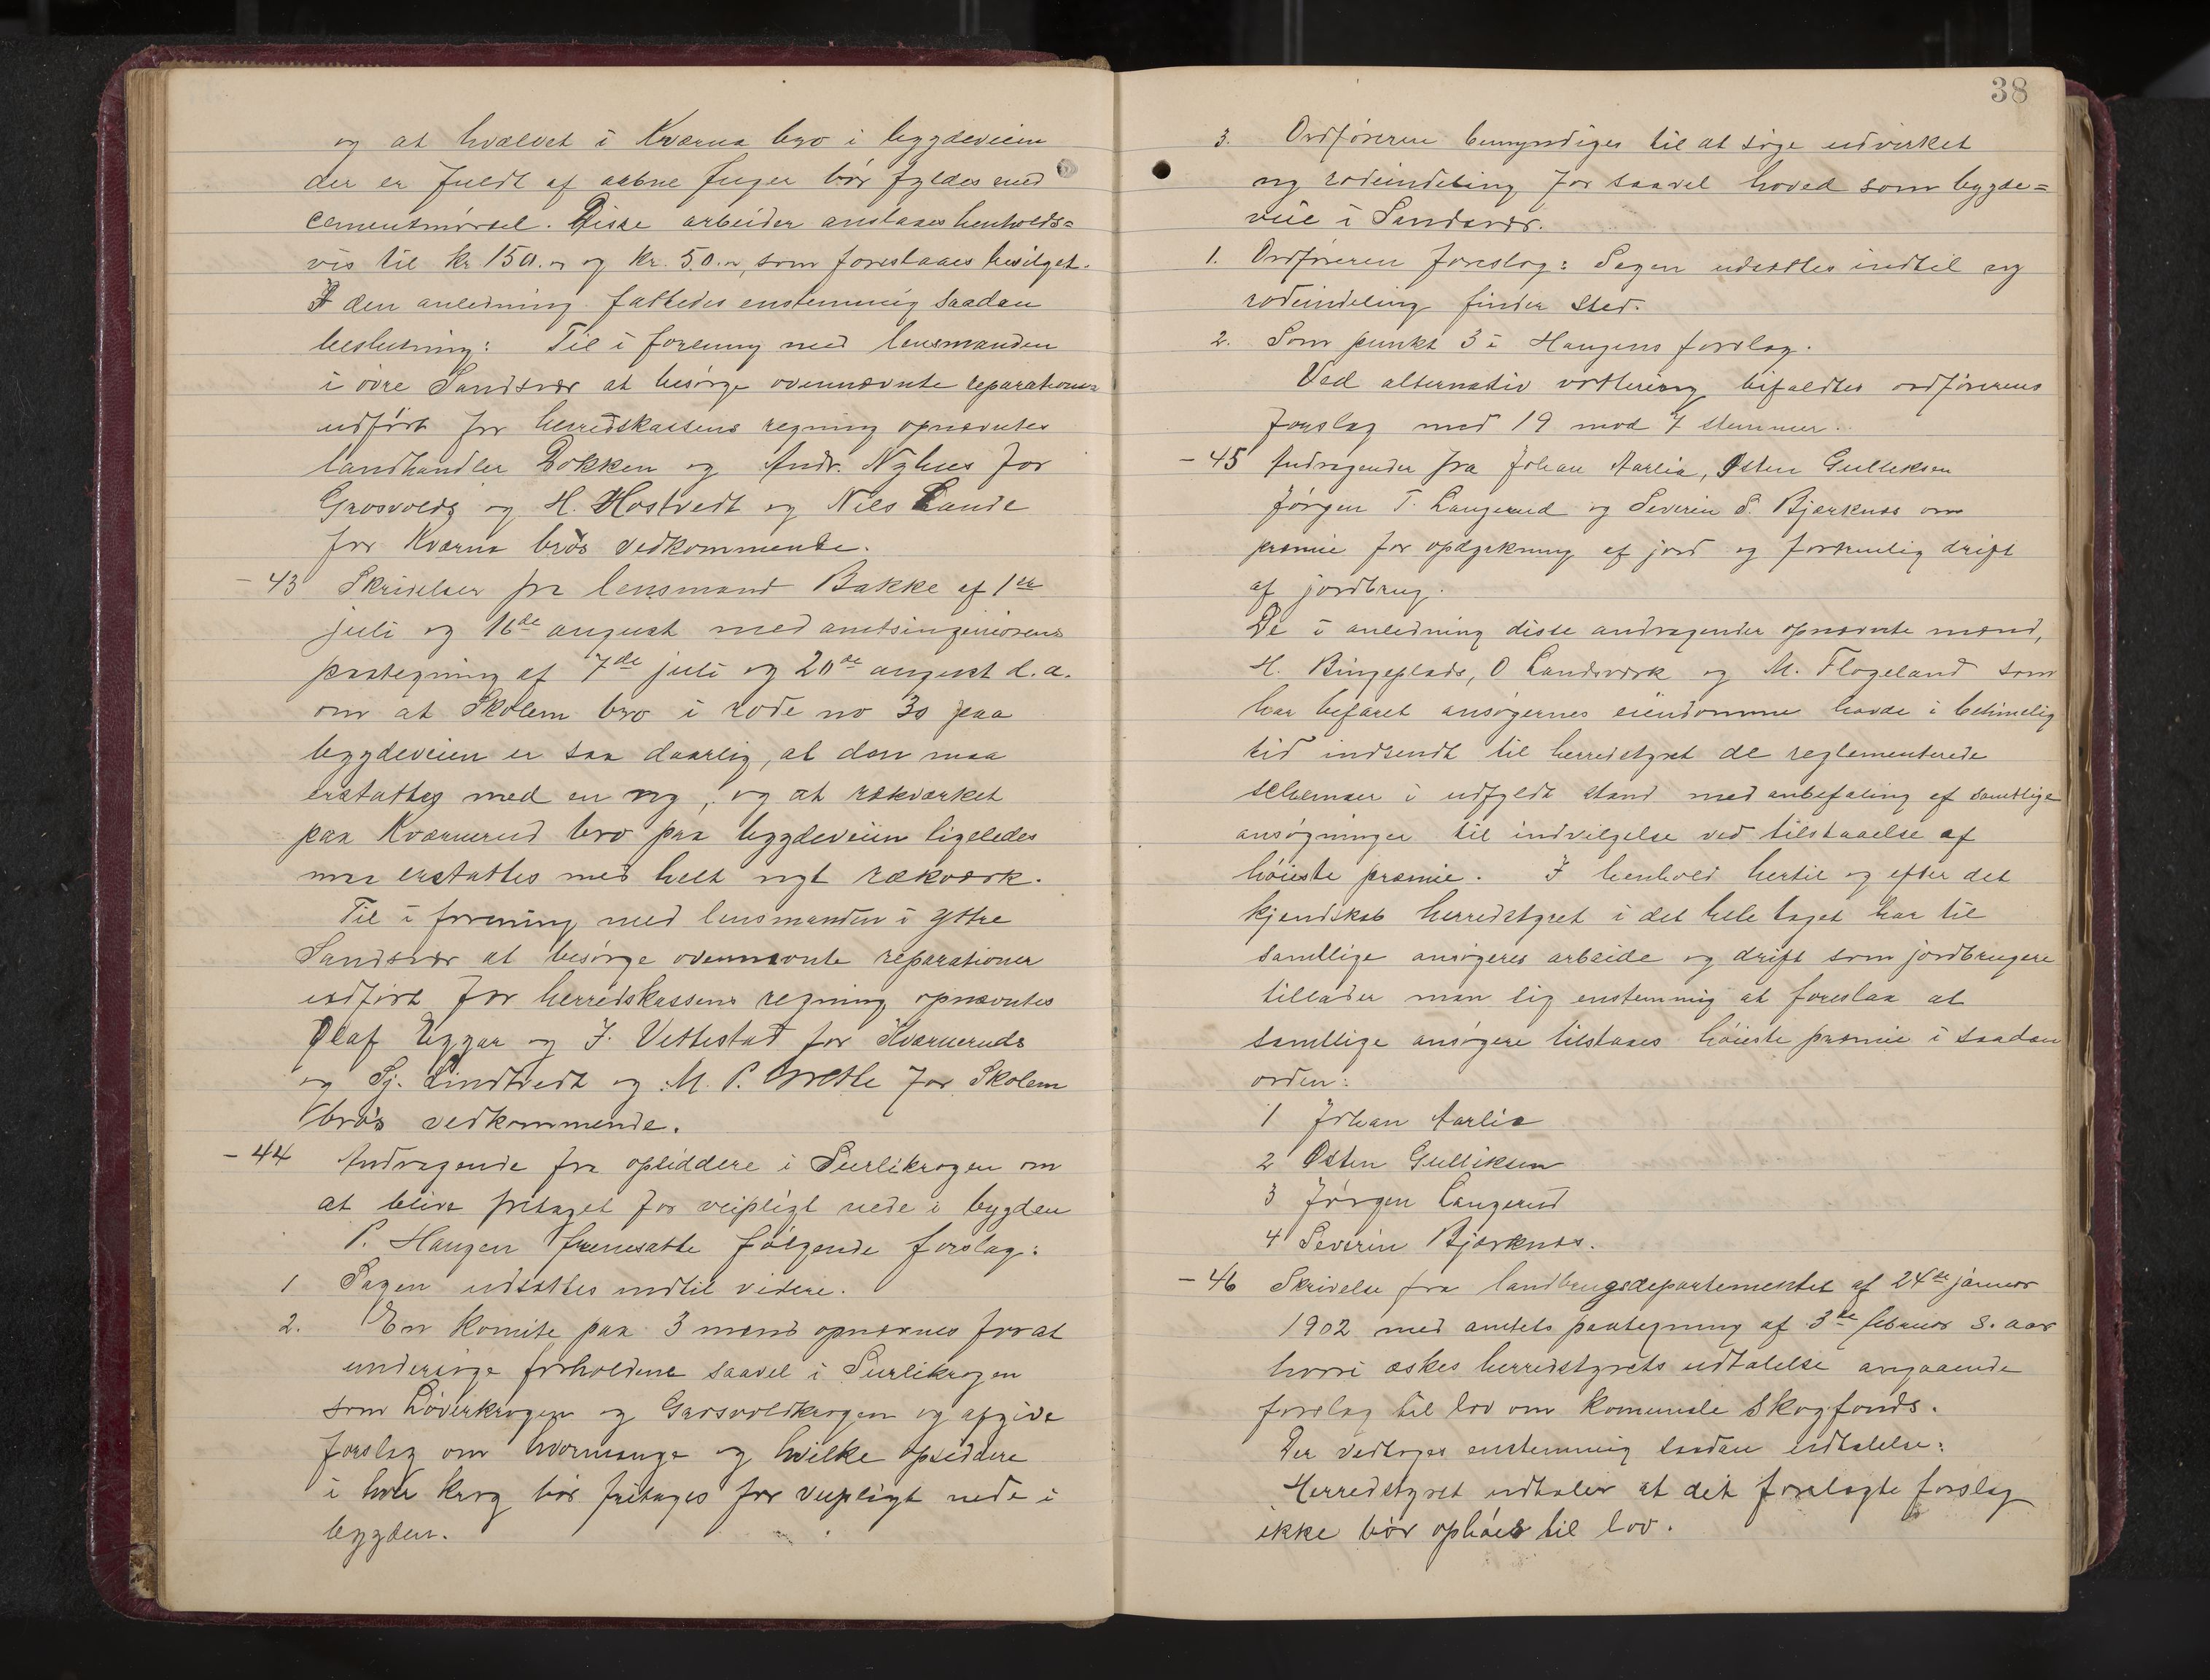 og at hvælvet i Kværna bro i bygdeveien
der er fuldt af aabne fuger bør fyldes med
cementmørtel. Disse arbeider anslaaes henholds=
vis til kr 150.00 og kr. 50.00, som foreslaaes bevilget.
I den anledning fattedes enstemmig saadan
beslutning: Til i forening med lensmanden
i øvre Sandsvær at besørge ovennævnte reparationer
udført for herredskassens regning opnævntes
landhandler Dokken og Andr. Nyhus for
Grosvolds og H. Hostvedt og Nils Lande
for Kværna bros vedkommende.
- 43 Skrivelser fra lensmand Bakke af 1ste
juli og 16de august med amtsingeniørens
paategning af 7de juli og 20de august d.a.
om at Skolem bro i rode no 30 paa
bygdeveien er saa daarlig, at den maa
erstattes med en ny, og at rækværket
paa Kværnerud bro paa bygdeveien ligeledes
maa erstattes med helt nyt rækværk.
Til i forening med lensmanden i ytre
Sandsvær at besørge ovennævnte reparationer
udført for herredskassens regning opnævntes
Olaf Eggar og J. Vettestad for Kværneruds
og Sj. Lindtvedt og M. P. for Skolem
bros vedkommende.
- 44 Andragende fra opsiddere i Surlikrogen om
at blive fritaget for veipligt nede i bygden
P. Haugen fremsatte følgende forslag:
1 Sagen udsættes indtil videre.
2. En komite paa 3 mænd opnævnes for at
undersøge forholdene saavel i Surlikrogen
som Løverkrogen og Grosvoldkrogen og afgive
forslag om hvormange og hvilke opsiddere
i hver krog bør fritages for veipligt nede i
bygden.
38
3. Ordføreren bemyndiges til at søge udvirket
ny rodeinddeling for saavel hoved som bygde=
veie i Sandsvær.
1. Ordføreren foreslog: Sagen udsættes indtil ny
rodeindeling finder sted.
2. Som punkt 3 i Haugens forslag.
Ved alternativ vottering bifaldtes ordførerens
forslag med 19 mod 7 stemmer.
- 45 Andragender fra Johan Aarlia, Østen Gulliksen
Jørgen T. Langerud og Severin S. Bjærknæs om
præmie for opdyrkning af jord og fortrinlig drift
af jordbrug.
De i anledning disse andragender opnævnte mænd,
H. Bingeplads, O Landsværk og M. Flogeland som
har befaret ansøgernes eiendomme havde i betimelig
tid indsendt til herredstyret de reglementerede
schemaer i udfyldt stand med anbefaling af samtlige
ansøgninger til indvilgelse ved tilstaaelse af
høieste præmie. I henhold hertil og efter det
kjendskab herredstyret i det hele taget har til
samtlige ansøgeres arbeide og drift som jordbrugere
tillader man sig enstemmig at foreslaa at
samtlige ansøgere tilstaaes høieste præmie i saadan
orden:
1 Johan Aarlia
2 Østen Gulliksen
3 Jørgen Langerud
4 Severin Bjærknæs.
- 46 Skrivelse fra landbrugsdepartementet af 24de januar
1902 med amtets paategning af 3die februar s. aar
hvori æskes herredstyrets udtalelse angaaende
forslag til lov om komunale skogfonds.
Der vedtoges enstemmig saadan udtalelse:
Herredstyret udtaler at det forelagte forslag
ikke bør ophøies til lov.